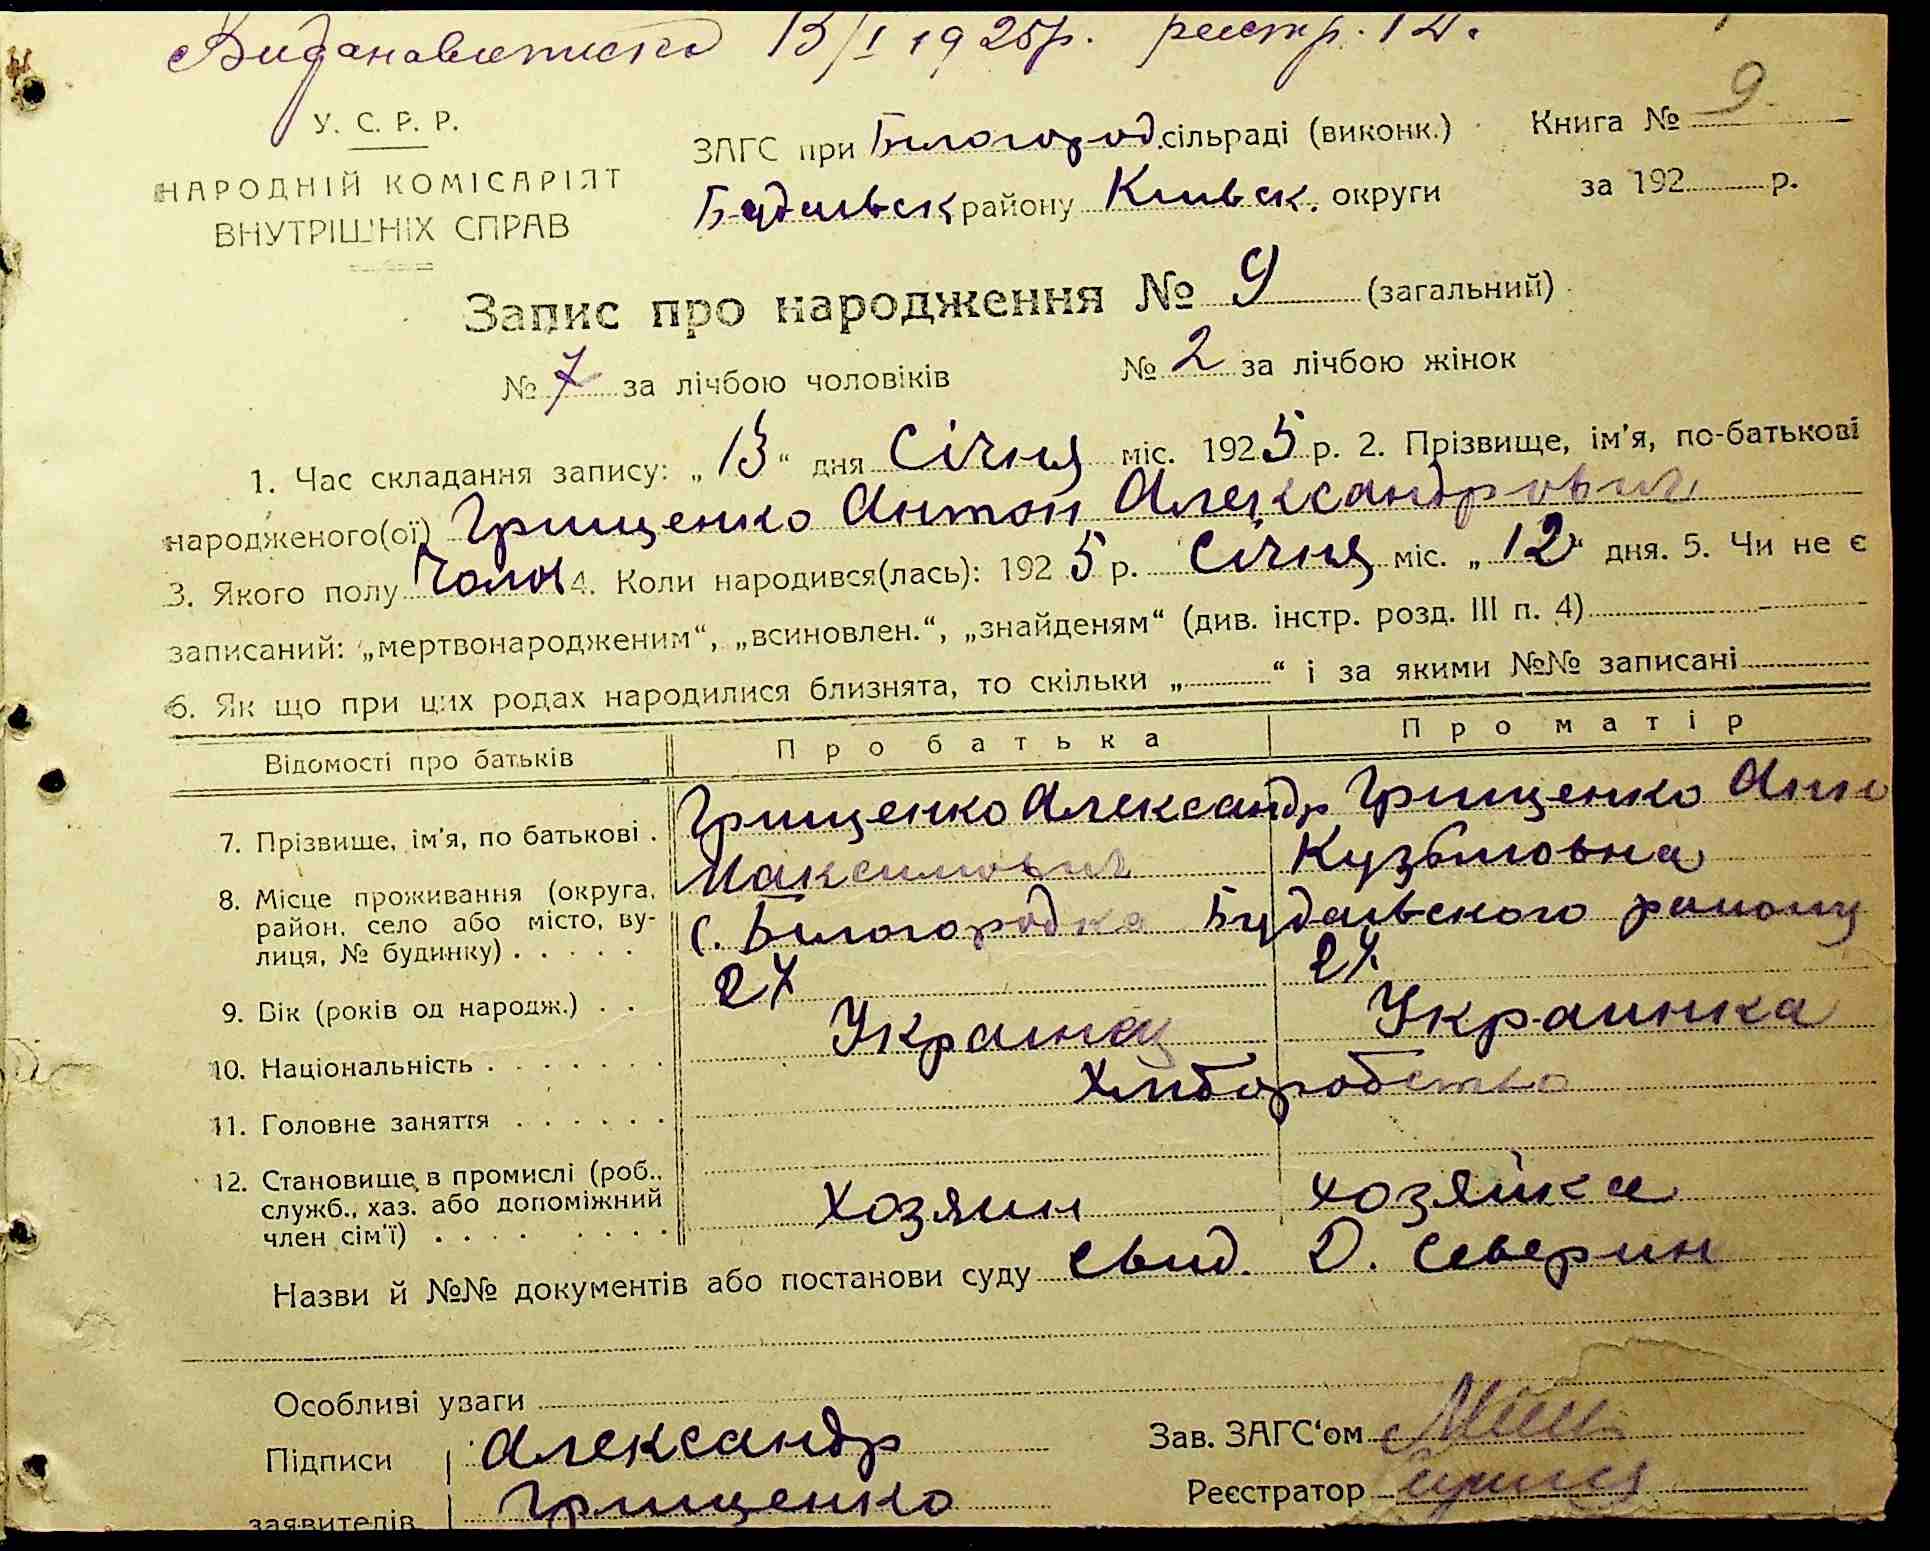 Видана виписка 13/I 1925р. реєстр. 12.
У. С. Р. Р.
НАРОДНІЙ КОМІСАРІЯТ
ВНУТРІШНІХ СПРАВ
ЗАГС при Білогород. сільраді (виконк.)
Будаївськ району Київськ. округи
Книга № 9
за 192 р.
Запис про народження № 9 (загальний)
№ 7 за лічбою чоловіків № 2 за лічбою жінок
1. Час складання запису: „13“ дня Січня міс. 1925 р. 2. Прізвище, ім'я, по-батькові
народженого(ої) Грищенко Антон Александрович
3. Якого полу Чолов 4. Коли народився(лась): 1925 р. Січня міс. „12“ дня. 5. Чи не є
записаний: „мертвонародженим“, „всиновлен.“, „знайденям“ (див. інстр. розд. III п. 4)
6. Як що при цих родах народилися близнята, то скільки „ “ і за якими №№ записані
Відомості про батьків Про батька Про матір
7. Прізвище, ім'я, по батькові . Грищенко Александр Грищенко
Максимович Кузьмовна
8. Місце проживання (округа,
район, село або місто, ву-
лиця, № будинку) . . . . . с. Білогородка Будаївского району
9. Вік (років од народж.) . . 27 27
10. Національність . . . . . . . Украинец Украинка
11. Головне заняття . . . . . . Хліборобство
12. Становище в промислі (роб.,
служб., хаз. або допоміжний
член сім'ї) . . . . . . . . Хозяин хозяйка
Назви й №№ документів або постанови суду свид. О. Северин
Особливі уваги
Підписи
заявителів
Александр
Грищенко
Зав. ЗАГС'ом
Реєстратор